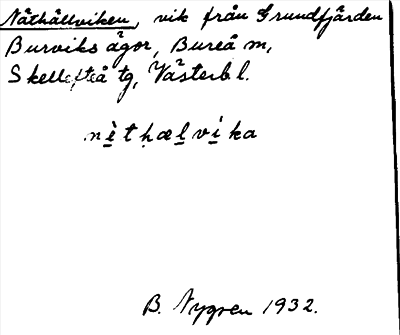 Nåthällviken, vik från Grundfjärden
Burviks ägor, Bureå m,
Skellefteå tg, Västerb l.
nìtḥælvíka
B. Nygren 1932.